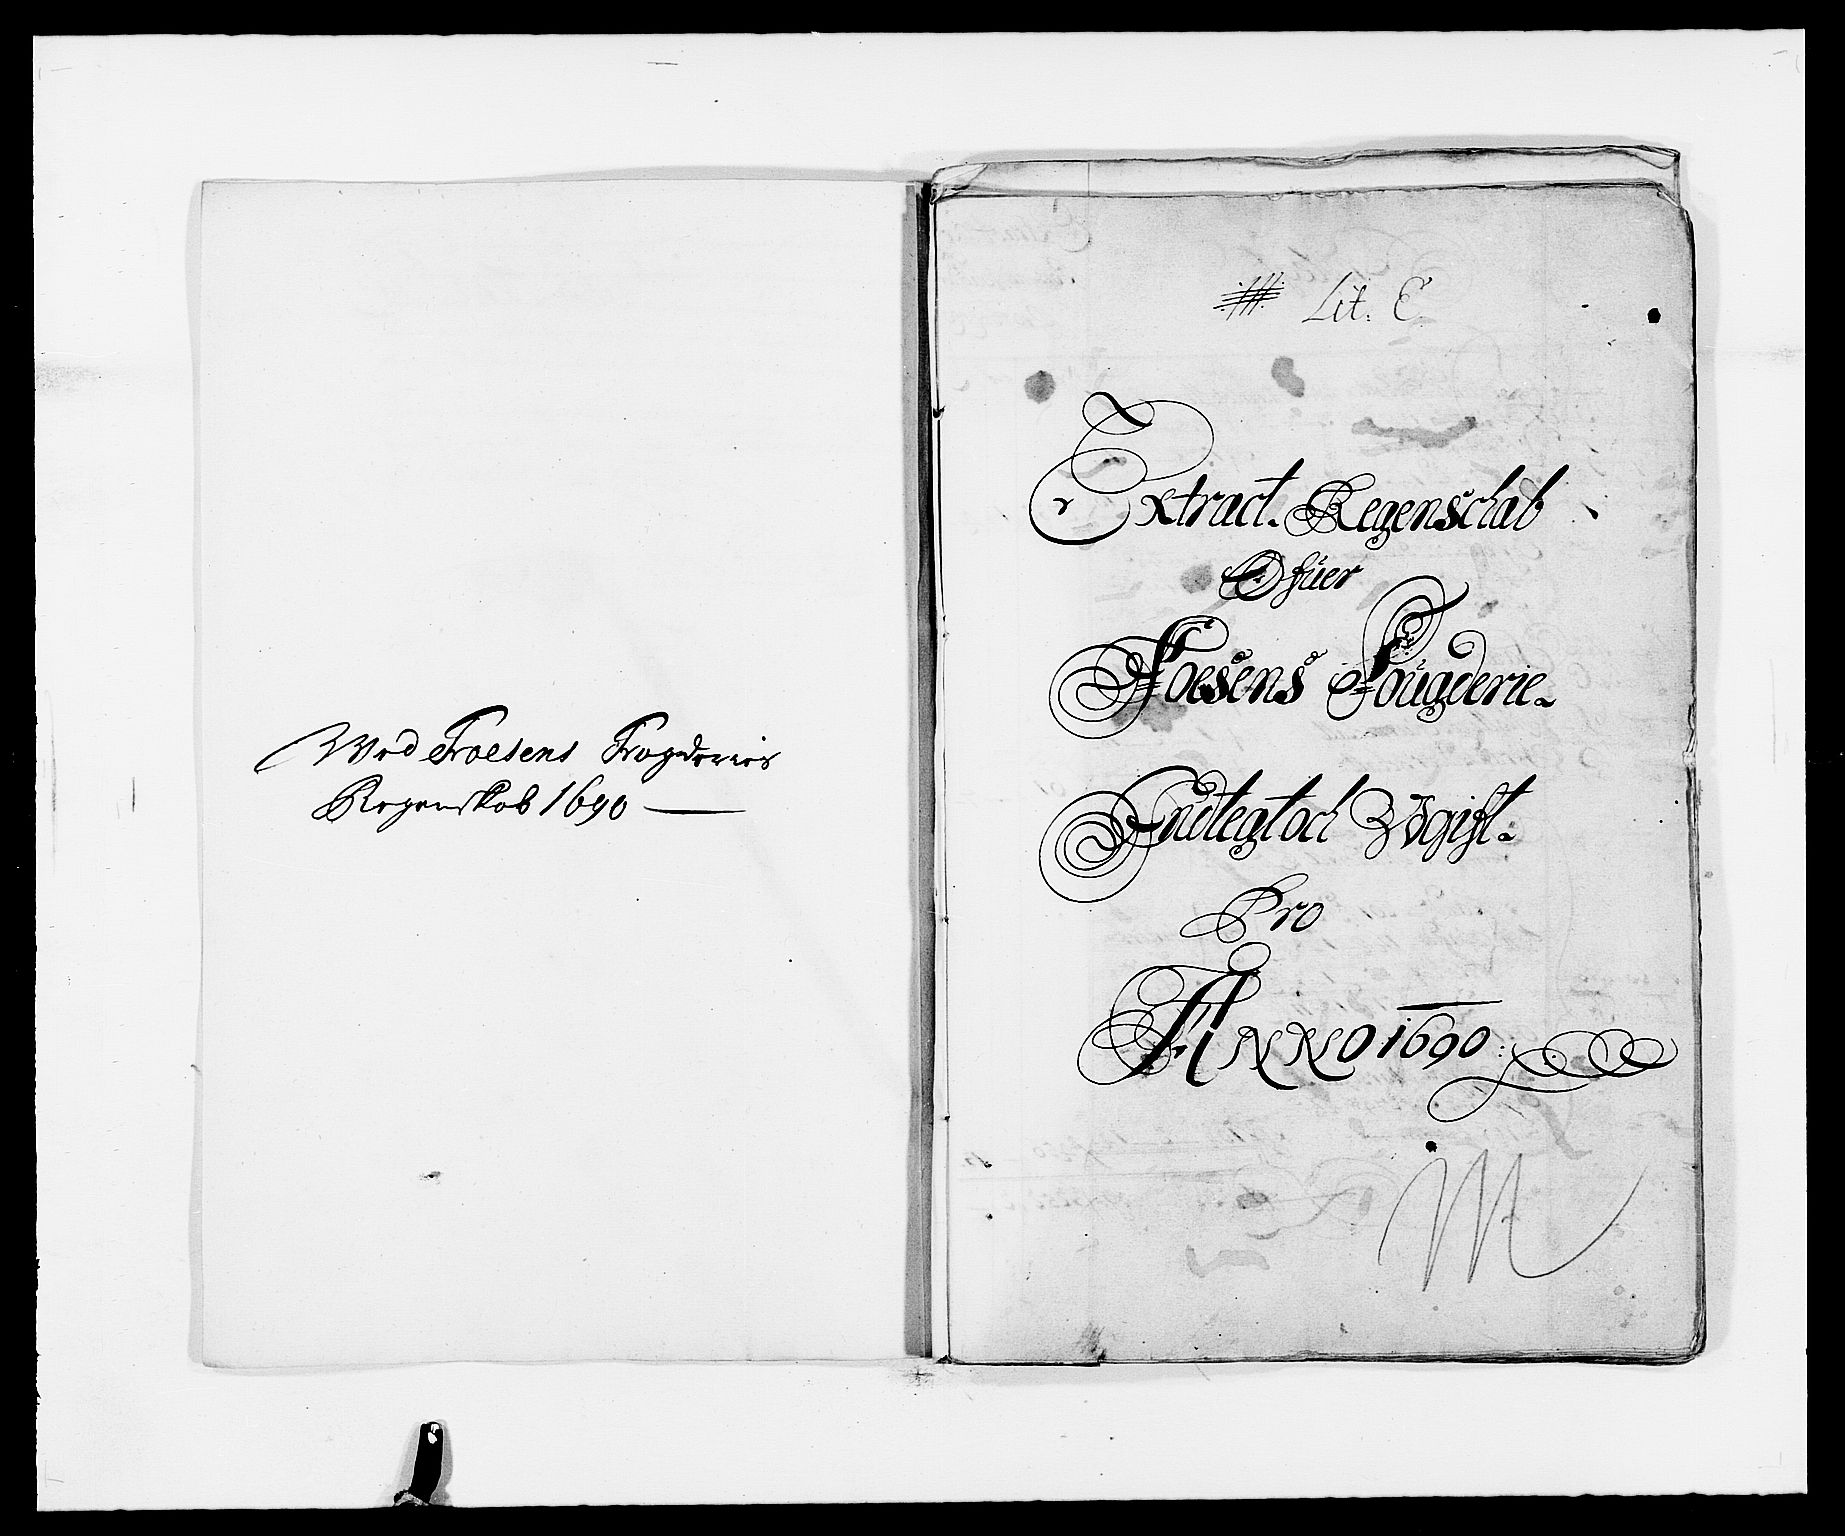 Wed Foesens Fogderies
Regenskab 1690
Lit. E
Extract. Regenschab
Ofuer
Foesens Fougderie
Indtegt och Vdgift
Pro
ANNO 1690